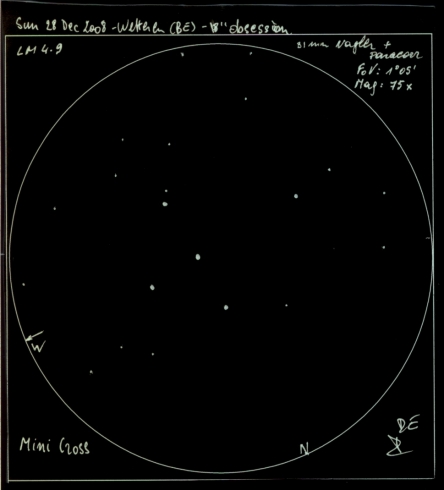 Sun 28 Dec 2008 - Wetteren (BE) - 18" obsession
LM 4.9
31 mm Nagler +
Paracorr
FoV: 1°05'
Mag: 75x
W
Mini Cross
N